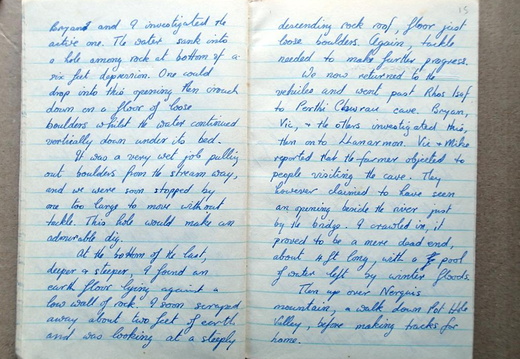 Bryan and I investigated the
active one. The water sank into
a hole among rock at bottom of a
six feet depression. One could
drop into this opening then crouch
down on a floor of loose
boulders whilst the water continued
vertically down under its bed.
It was a very wet job pulling
out boulders from the stream way,
and we were soon stopped by
one too large to move without
tackle. This hole would make an
admirable dig.
At the bottom of the last,
deeper & steeper, I found an
earth floor lying against a
low wall of rock. I soon scraped
away about two feet of earth
and was looking at a steeply
15
descending rock roof, floor just
loose boulders. Again, tackle
needed to make further progress.
We now returned to the
vehicles and went past Rhos Isaf
to Perthi Chwarau cave. Bryan,
Vic, & the others investigated this,
then onto Llanarmon. Vic & Mike
reported that the farmer objected to
people visiting the cave. They
however claimed to have seen
an opening beside the river just
by the bridge. I crawled in, it
proved to be a mere dead end,
about 4 ft long, with a pool
of water left by winter floods.
Then up over Nergis
mountain, a walk down Pot Hole
Valley, before making tracks for
home.